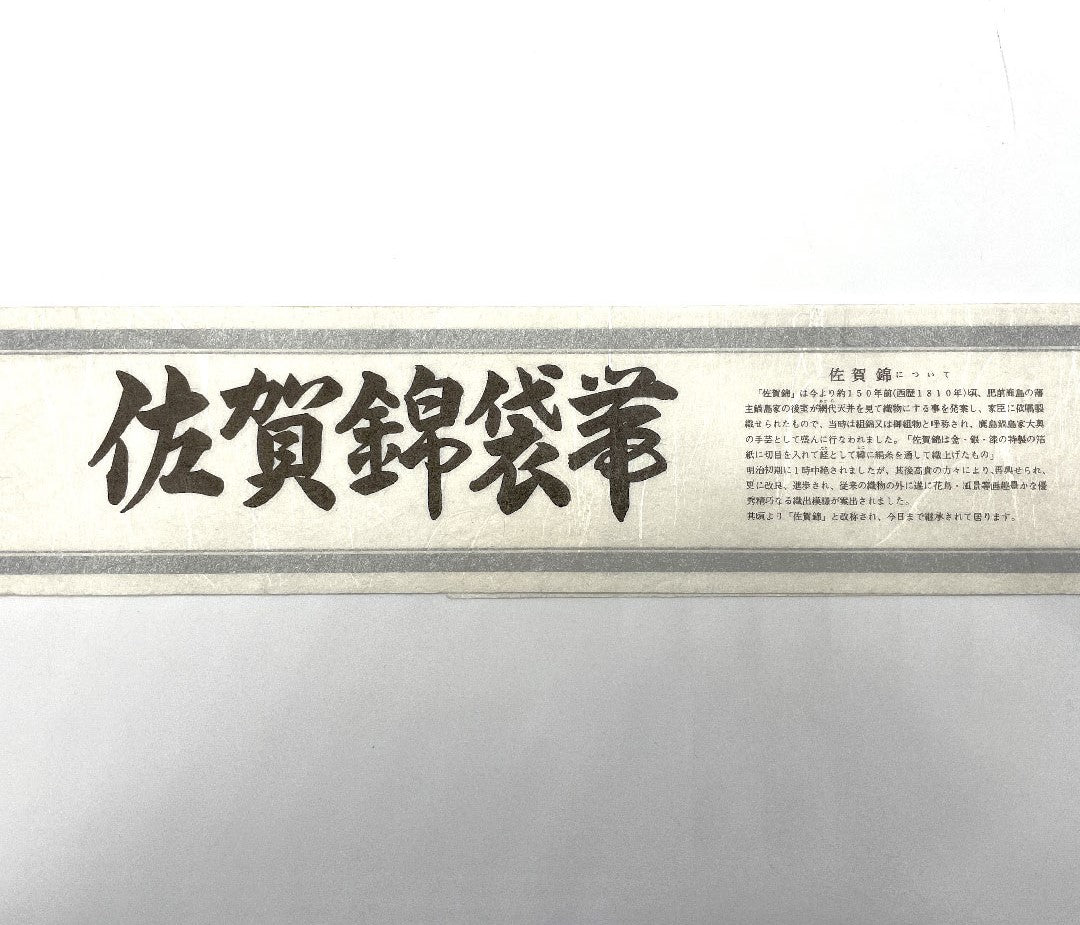 佐賀錦袋帯
佐賀錦について
「佐賀錦」は今より約150年前(西歴1810年)頃、肥前鹿島の藩
主鍋島家の後室が網代天井を見て織物にする事を発案し、家臣に依嘱製
織せられたもので、当時は組錦又は御組物と呼称され、鹿島鍋島家大奥
の手芸として盛んに行なわれました。「佐賀錦は金・銀・漆の特製の箔
紙に切目を入れて経として緯に絹糸を通して織上げたもの」
明治初期に1時中絶されましたが、其後高貴の方々により、再興せられ、
更に改良、進歩され、従来の織物の外に遂に花鳥・風景等画趣豊かな優
秀精巧なる織出模様が案出されました。
其頃より「佐賀錦」と改称され、今日まで継承されて居ります。